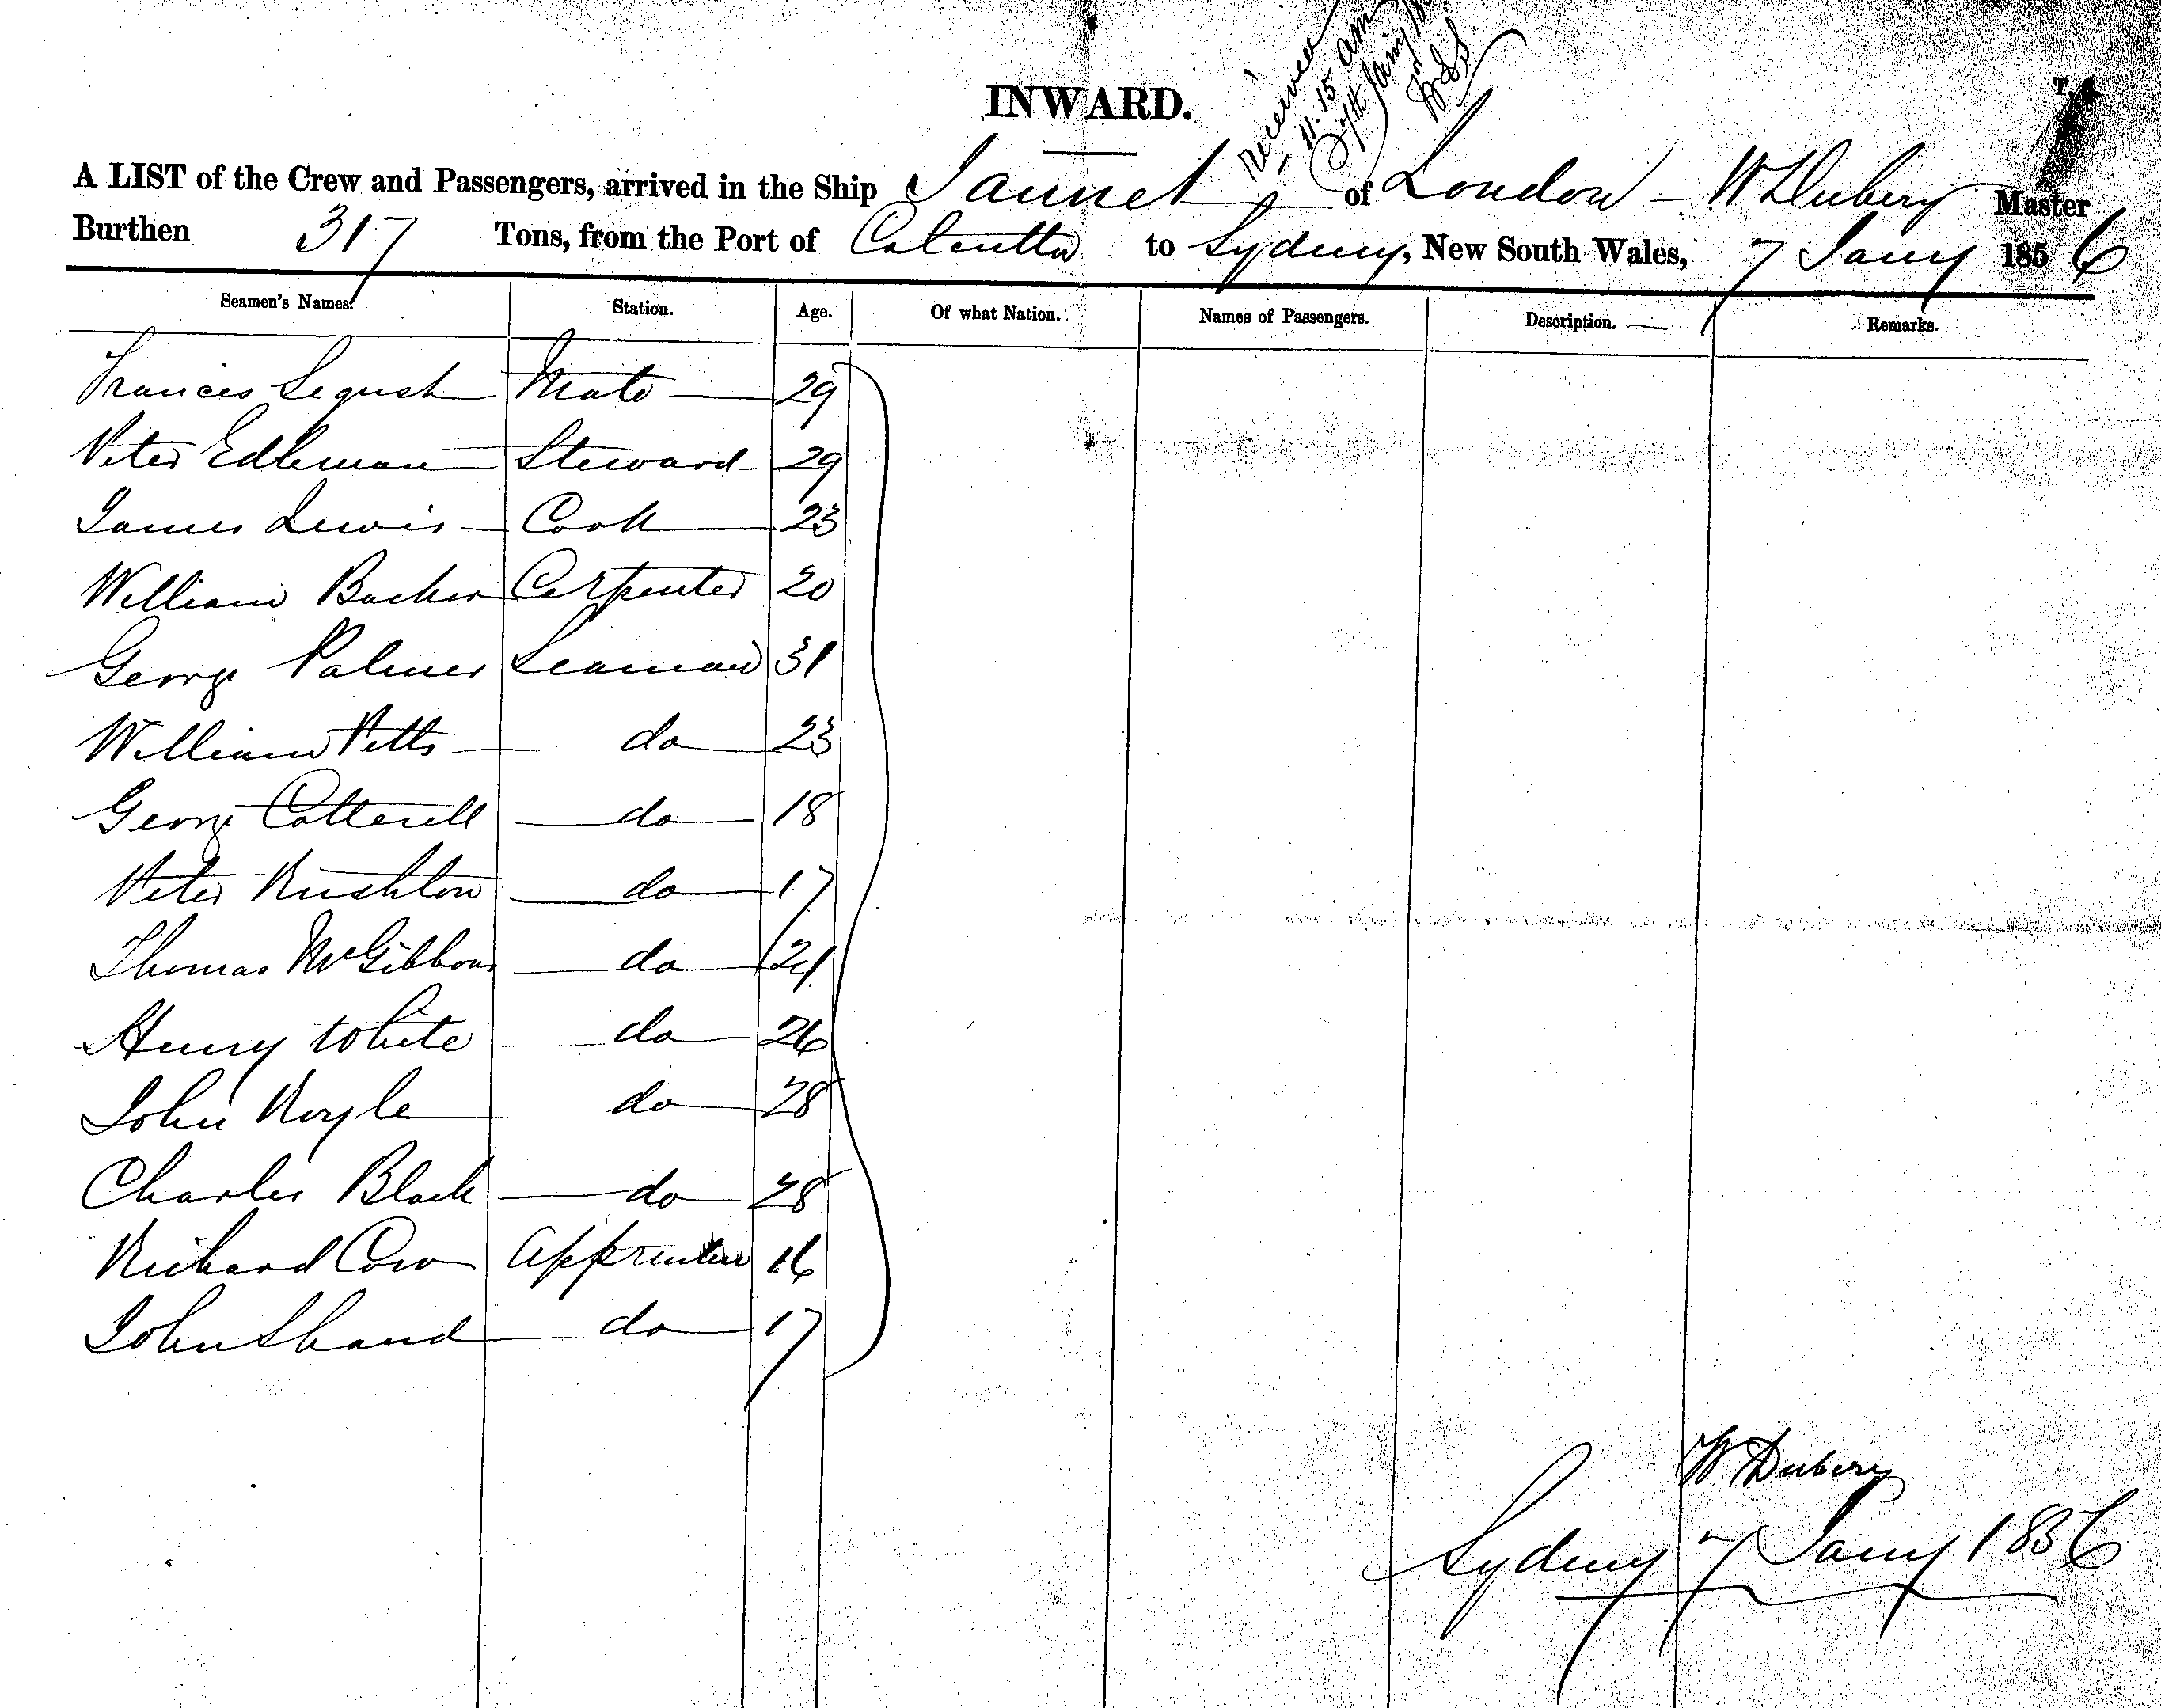 INWARD.
Received
11.15 am
7th Jany
T. 4.
A LIST of the Crew and Passengers, arrived in the Ship Jannet of London - W Dubery Master
Burthen 317 Tons, from the Port of Calcutta to Sydney, New South Wales, 7 Jany 1856
Seamen's Names. Station. Age. Of what Nation. Names of Passengers. Description. Remarks.
Francis Legush Mate 29
Peter Edleman Steward 29
James Lewis Cook 23
William Backer Carpenter 20
George Palmer Seaman 31
William Pitts do 23
George Cotterell do 18
Peter Rushton do 17
Thomas McGibbons do 21
Henry White do 26
John Royle do 28
Charles Black do 28
Richard Cow Apprentice 16
John Shand do 17
W Dubery
Sydney 7 Jany 1856